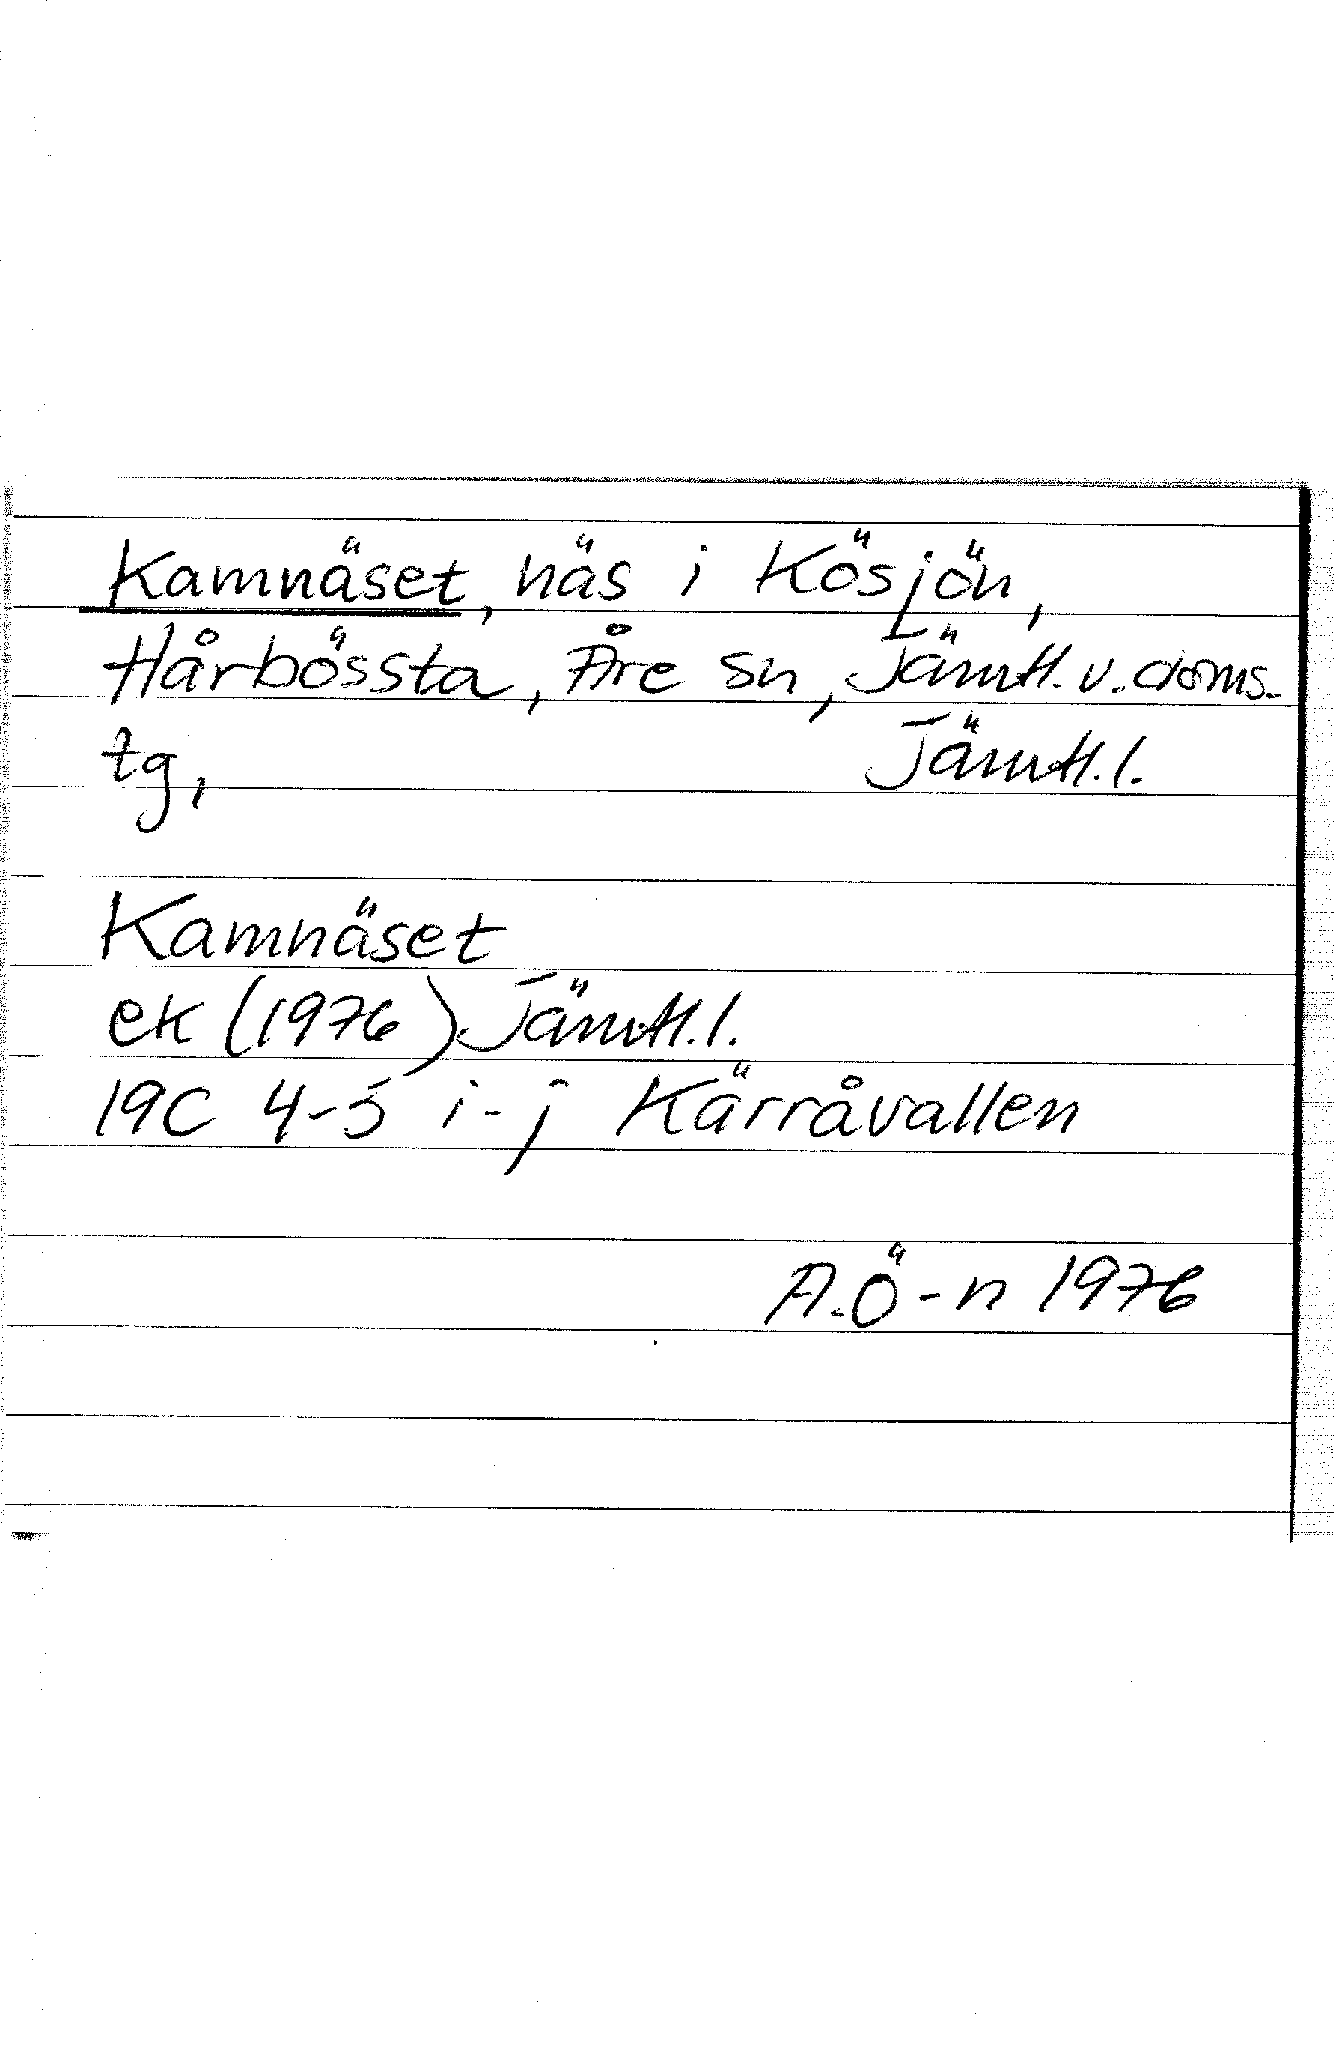 Kamnäset, näs i Kösjön,
Hårbössta, Åre sn, Jämtl. v. doms-
tg, Jämtl. l.
Kamnäset
ek (1976) Jämtl. l.
19C 4-5 i-j Kärråvallen
A.Ö-n 1976